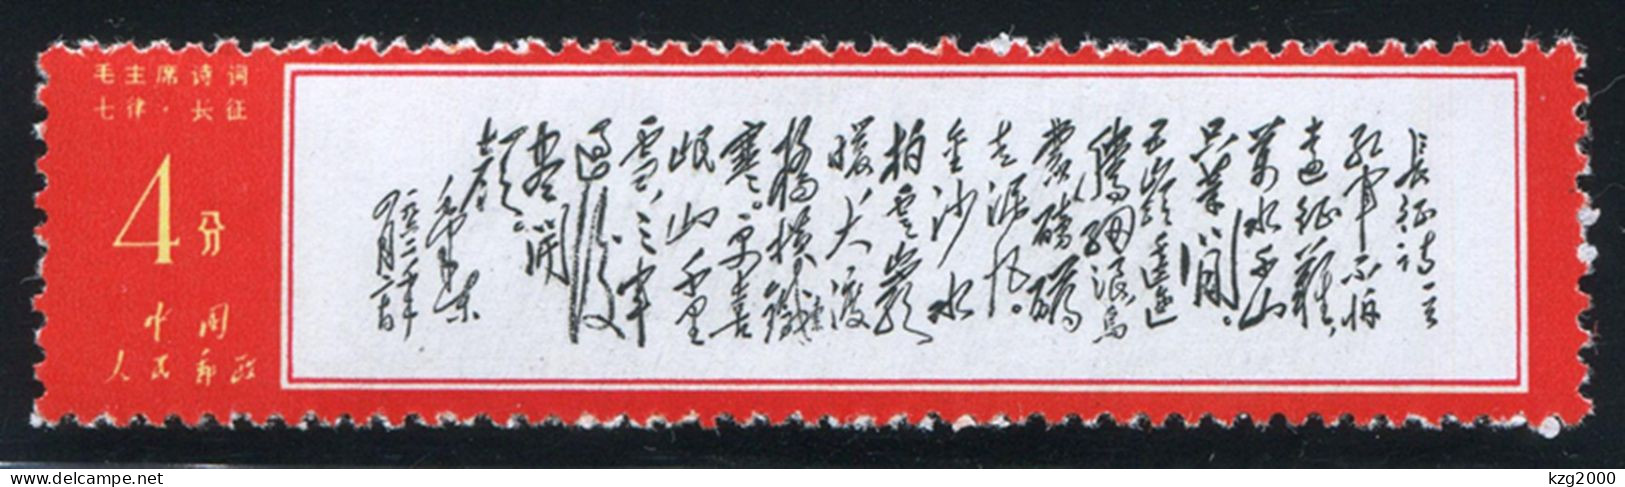 毛主席诗词
七律·长征
4分
中国
人民邮政
長征詩一首
红軍不怕
遠征難,
萬水千山
只等閒。
五嶺逶迤
騰細浪,烏
蒙磅礴
走泥丸。
金沙水
拍雲崖
暖,大渡
橋橫鐵索
寒。更喜
岷山千里
雪,三軍
過後
盡開
顏。
毛澤東
一九六二年
kzg2000